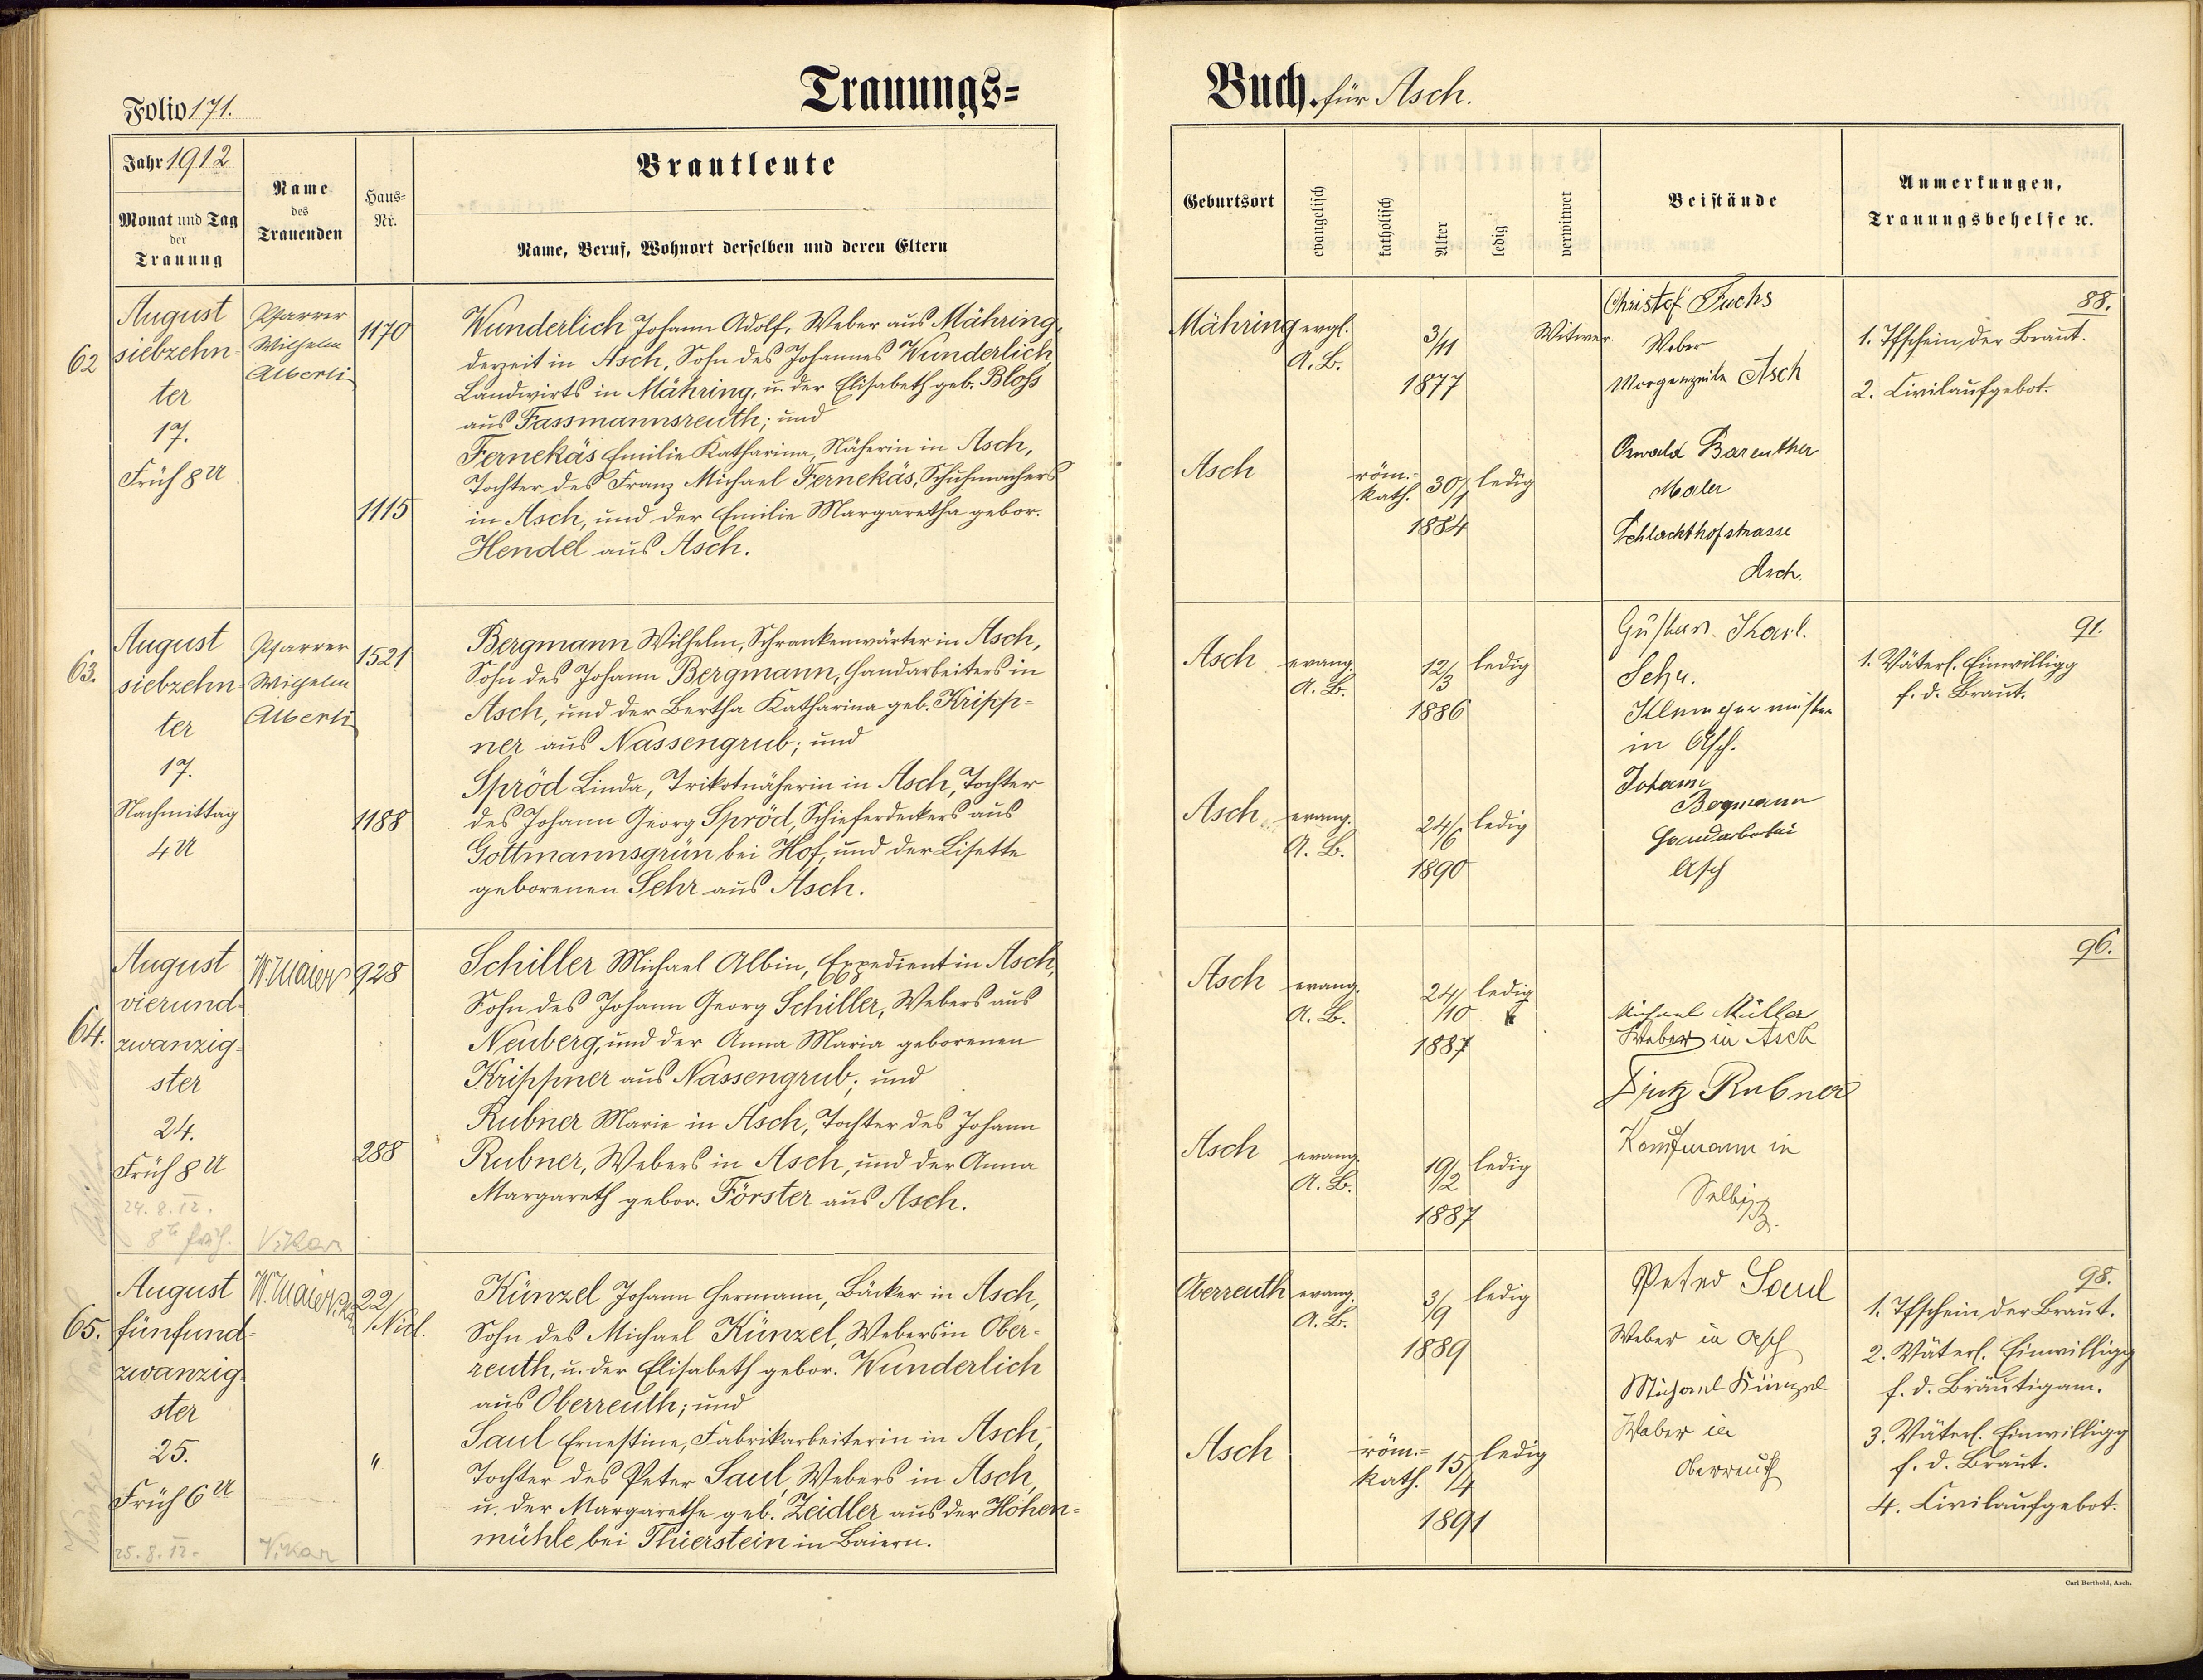 Folio 171.
Trauungs=
Buch. für Asch.
Jahr 1912
Monat und Tag
der
Trauung
Name
des
Trauenden
Haus-
Nr.
Brautleute
Name, Beruf, Wohnort derselben und deren Eltern
Geburtsort
evangelisch
katholisch
Alter
ledig
verwitwet
Beistände
Anmerkungen,
Trauungsbehelfe ꝛc.
62
August
siebzehn-
ter
17.
Früh 8 U
Pfarrer
Wilhelm
Alberti
1170
1115
Wunderlich Johann Adolf, Weber aus Mähring,
derzeit in Asch, Sohn des Johannes Wunderlich,
Landwirts in Mähring, u. der Elisabeth geb. Bloß
aus Fassmannsreuth; und
Fernekäs Emilie Katharina, Näherin in Asch,
Tochter des Franz Michael Fernekäs, Schuhmachers
in Asch, und der Emilie Margaretha gebor.
Hendel aus Asch.
Mähring
evgl.
A. B.
3/11
1877
Witwer.
Asch
röm.=
kath.
30/1
1884
ledig
Christof Fuchs
Weber
Morgenzeile Asch
Oswald Bareuther
Maler
Schlachthofstrasse
Asch.
88.
1. Tfschein der Braut.
2. Civilaufgebot.
63.
August
siebzehn-
ter
17.
Nachmittag
4 U
Pfarrer
Wilhelm
Alberti
1521
1188
Bergmann Wilhelm, Schrankenwärter in Asch,
Sohn des Johann Bergmann, Handarbeiters in
Asch, und der Bertha Katharina geb. Kripp-
ner aus Nassengrub; und
Spröd Linda, Trikotnäherin in Asch, Tochter
des Johann Georg Spröd, Schieferdeckers aus
Gottmannsgrün bei Hof, und der Lisette
geborenen Sehr aus Asch.
Asch
evang.
A. B.
12/3
1886
ledig
Asch
evang.
A. B.
24/6
1890
ledig
Gustav Karl.
in Asch.
Johann
Bergmann
Handarbeiter
Asch
91.
1. Väterl. Einwilligg
f. d. Braut.
64.
August
vierund-
zwanzig-
ster
24.
Früh 8 U
24. 8. 12.
8h früh.
W. Maier
Vikar
928
288
Schiller Michael Albin, Expedient in Asch,
Sohn des Johann Georg Schiller, Webers aus
Neuberg, und der Anna Maria geborenen
Krippner aus Nassengrub; und
Rubner Marie in Asch, Tochter des Johann
Rubner, Webers in Asch, und der Anna
Margareth gebor. Förster aus Asch.
Asch
evang.
A. B.
24/10
1887
ledig
Asch
evang.
A. B.
19/2
1887
ledig
Michael Müller
Weber in Asch
Fritz Rubner
Kaufmann in
Selb i/B.
96.
65.
August
fünfund-
zwanzig-
ster
25.
Früh 6 U
25. 8. 12.
W. Maier
Vikar
22/
Nicl.
"
Künzel Johann Hermann, Bäcker in Asch,
Sohn des Michael Künzel, Webers in Ober-
reuth, u. der Elisabeth gebor. Wunderlich
aus Oberreuth; und
Saul Ernestine, Fabrikarbeiterin in Asch,
Tochter des Peter Saul, Webers in Asch,
u. der Margarethe geb. Zeidler aus der Hohen-
mühle bei Thierstein in Baiern.
Oberreuth
evang.
A. B.
3/9
1889
ledig
Asch
röm.=
kath.
15/4
1891
ledig
Peter Saul
Weber in Asch
Michael Künzel
Weber in
Oberreuth
98.
1. Tfschein der Braut.
2. Väterl. Einwilligg
f. d. Bräutigam.
3. Väterl. Einwilligg
f. d. Braut.
4. Civilaufgebot.
Carl Berthold, Asch.